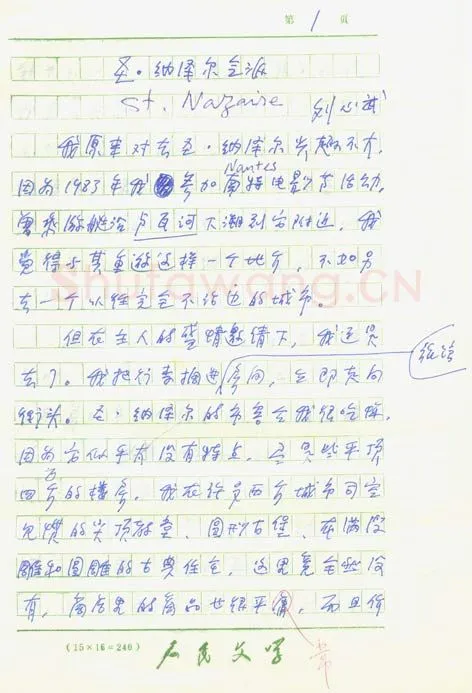 第 1 页
圣·纳泽尔金滩
St. Nazaire 刘心武
我原来对去圣·纳泽尔兴趣不大,
Nantes
因为1983年我参加南特电影节活动,
曾乘游艇沿卢瓦河下溯到它附近,我
觉得与其重游这样一个地方,不如另
去一个以往完全不沾边的城市。
但在主人的盛情邀请下,我还是
去了。我把行李搁进房间,立即奔向
街头。圣·纳泽尔的市容令我很吃惊,
因为它似乎有没有特点,尽是些平顶
四方的楼房,我在许多西方城市司空
见惯的尖顶教堂、圆形古堡、布满浮
雕和圆雕的古典住宅,这里竟全然没
有,商店里的商品也很平庸,而且街
常
(15×16=240) 人民文学
Shufawang.CN